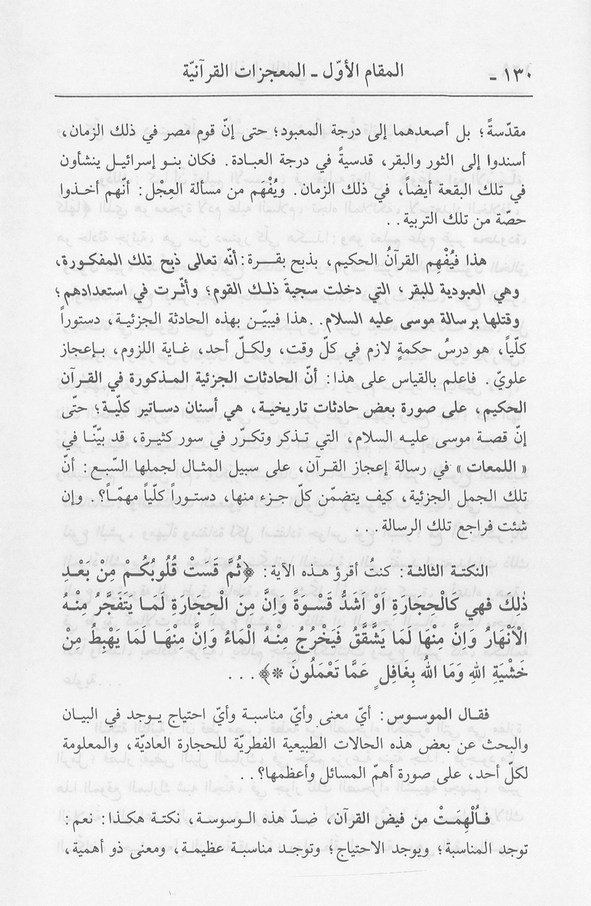 ١٣٠ - المقام الأوّل - المعجزات القرآنيّة
مقدّسةً؛ بل أصعدهما إلى درجة المعبود؛ حتى إنّ قوم مصر في ذلك الزمان،
أسندوا إلى الثور والبقر، قدسيةً في درجة العبادة. فكان بنو إسرائيل ينشأون
في تلك البقعة أيضاً، في ذلك الزمان. ويُفْهَم من مسألة العِجْل: أنّهم أخذوا
حصّة من تلك التربية..
هذا فيُفْهِم القرآنُ الحكيم، بذبح بقرة: أنّه تعالى ذبح تلك المفكورة،
وهي العبودية للبقر، التي دخلت سجيةَ ذلك القوم؛ وأثّرت في استعدادهم؛
وقتلها برسالة موسى عليه السلام.. هذا فيبيّن بهذه الحادثة الجزئية، دستوراً
كلّياً، هو درسُ حكمةٍ لازم في كلّ وقت، ولكلّ أحد، غاية اللزوم، بإعجاز
علويّ. فاعلم بالقياس على هذا: أنّ الحادثات الجزئية المذكورة في القرآن
الحكيم، على صورة بعض حادثات تاريخية، هي أسنان دساتير كليّة؛ حتّى
إنّ قصة موسى عليه السلام، التي تذكر وتكرّر في سور كثيرة، قد بيّنّا في
« اللمعات » في رسالة إعجاز القرآن، على سبيل المثال لجملها السّبع: أنّ
تلك الجمل الجزئية، كيف يتضمّن كلّ جزء منها، دستوراً كلّياً مهمّاً؟. وإن
شئت فراجع تلك الرسالة...
النكتة الثالثة: كنتُ أقرؤ هذه الآية: ﴿ثُمَّ قَسَتْ قُلُوبُكُمْ مِنْ بَعْدِ
ذٰلِكَ فَهِي كَالْحِجَارَةِ اَوْ اَشَدُّ قَسْوَةً وَاِنَّ مِنَ الْحِجَارَةِ لَمَا يَتَفَجَّرُ مِنْهُ
الْاَنْهَارُ وَاِنَّ مِنْهَا لَمَا يَشَّقَّقُ فَيَخْرُجُ مِنْهُ الْمَاءُ وَاِنَّ مِنْهَا لَمَا يَهْبِطُ مِنْ
خَشْيَةِ اللهِ وَمَا اللهُ بِغَافِلٍ عَمَّا تَعْمَلُونَ *﴾...
فقال الموسوس: أيّ معنى وأيّ مناسبة وأيّ احتياج يوجد في البيان
والبحث عن بعض هذه الحالات الطبيعية الفطريّة للحجارة العاديّة، والمعلومة
لكلّ أحد، على صورة أهمّ المسائل وأعظمها؟..
فأُلْهِمَتْ من فيض القرآن، ضدّ هذه الوسوسة، نكتة هكذا: نعم:
توجد المناسبة؛ ويوجد الاحتياج؛ وتوجد مناسبة عظيمة، ومعنى ذو أهمية،